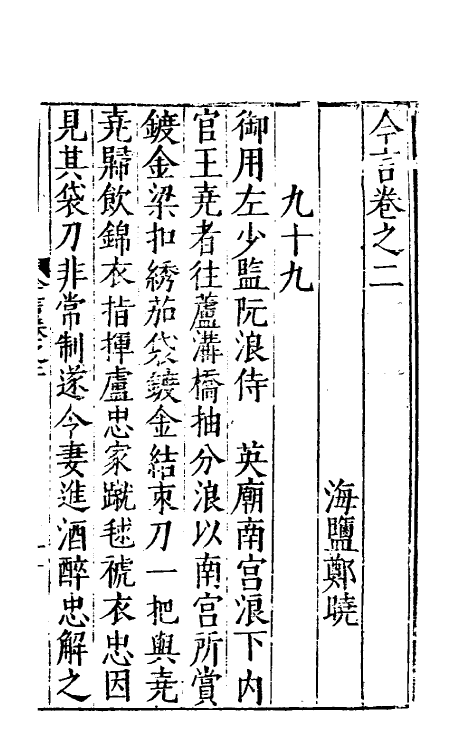 今言卷之二
海鹽鄭曉
九十九
御用左少監阮浪侍　英廟南宫浪下内
官王尭者往蘆溝橋抽分浪以南宫所賞
鍍金梁扣綉茄袋鍍金結束刀一把與尭
尭歸飲錦衣指揮盧忠家蹴毬褫衣忠因
見其袋刀非常制遂令妻進酒醉忠解之